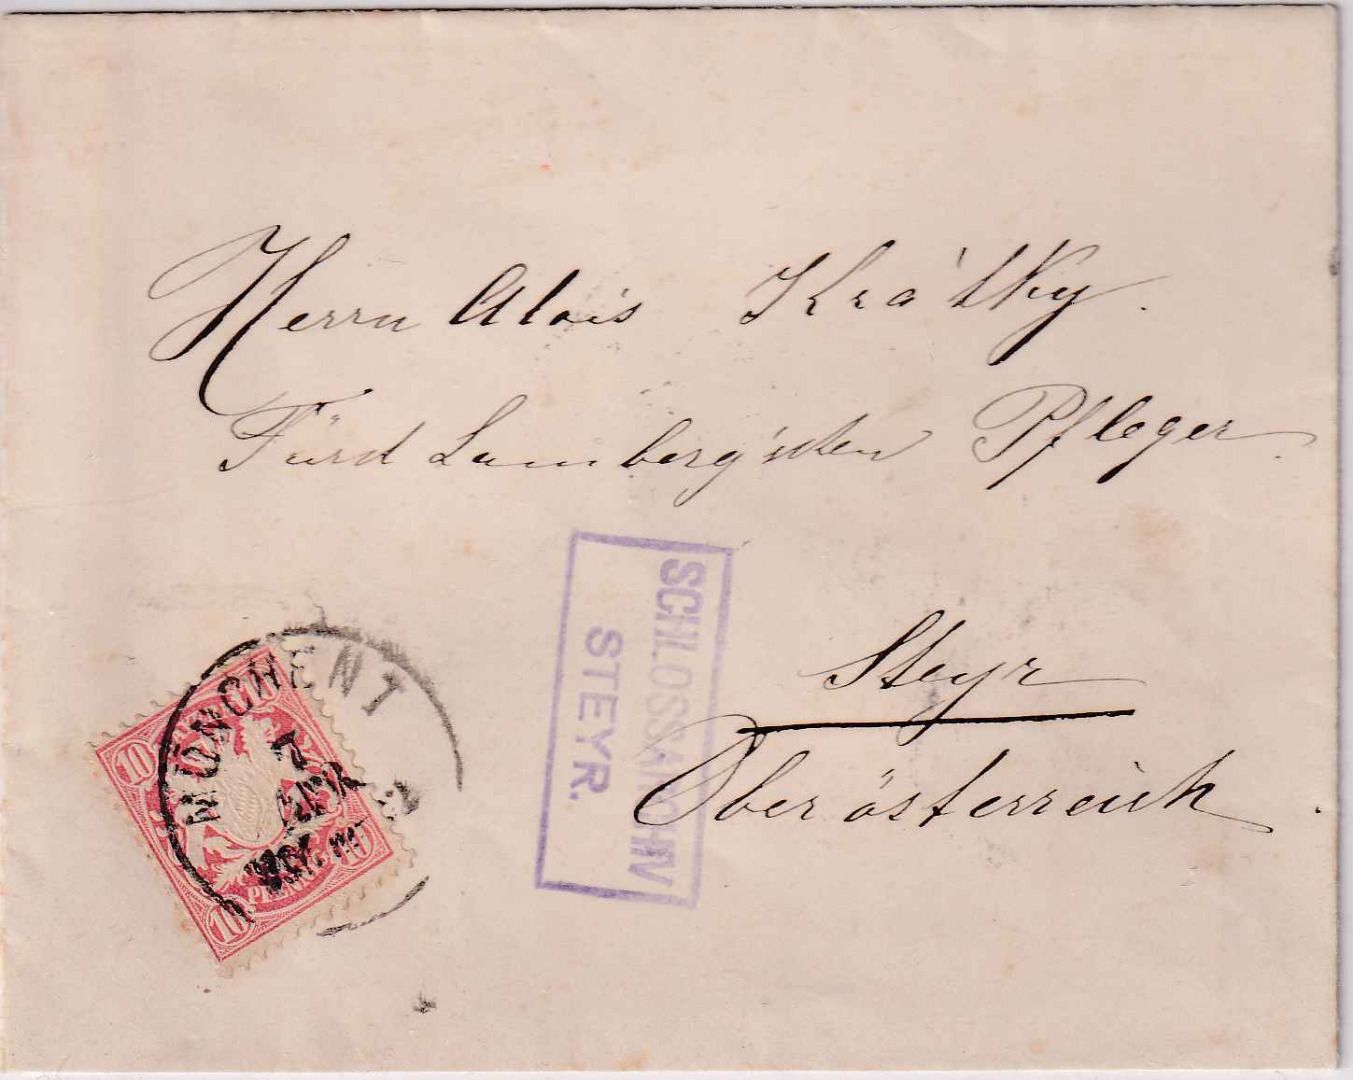 Herrn Alois Krátky.
Fürst Lambergschen Pfleger
SCHLOSSARCHIV
STEYR.
Steyr
Oberösterreich.
MÜNCHEN 1
7
APR
10
10
10